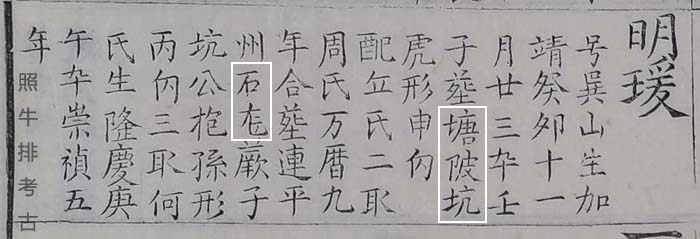 明瑗
号巽山生加
靖癸夘十一
月廿三卆壬
子塟塘陂坑
虎形申向
配丘氏二取
周氏万暦九
年合塟連平
州石庬蕨子
坑公抱孫形
丙向三取何
氏生隆慶庚
午卆崇禎五
年
照牛排考古